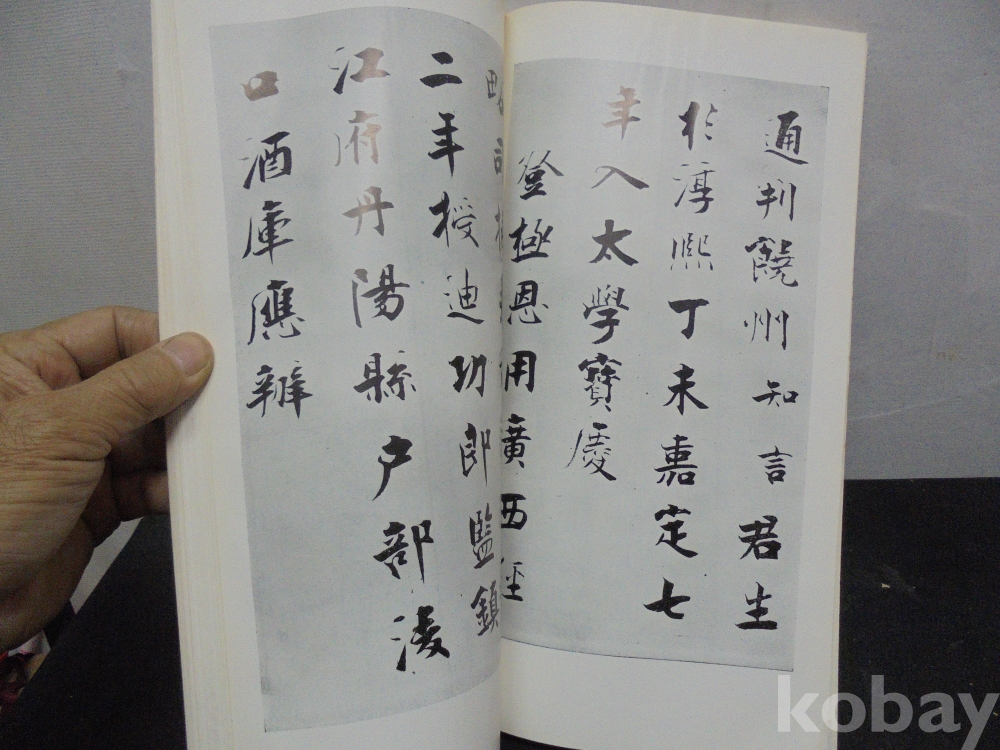 通判饒州知言君生
於淳熙丁未嘉定七
年入太學寶慶
登極恩用廣西經
略司
二年授迪功郎監鎮
江府丹陽縣戶部淩
口酒庫應辦
kobay